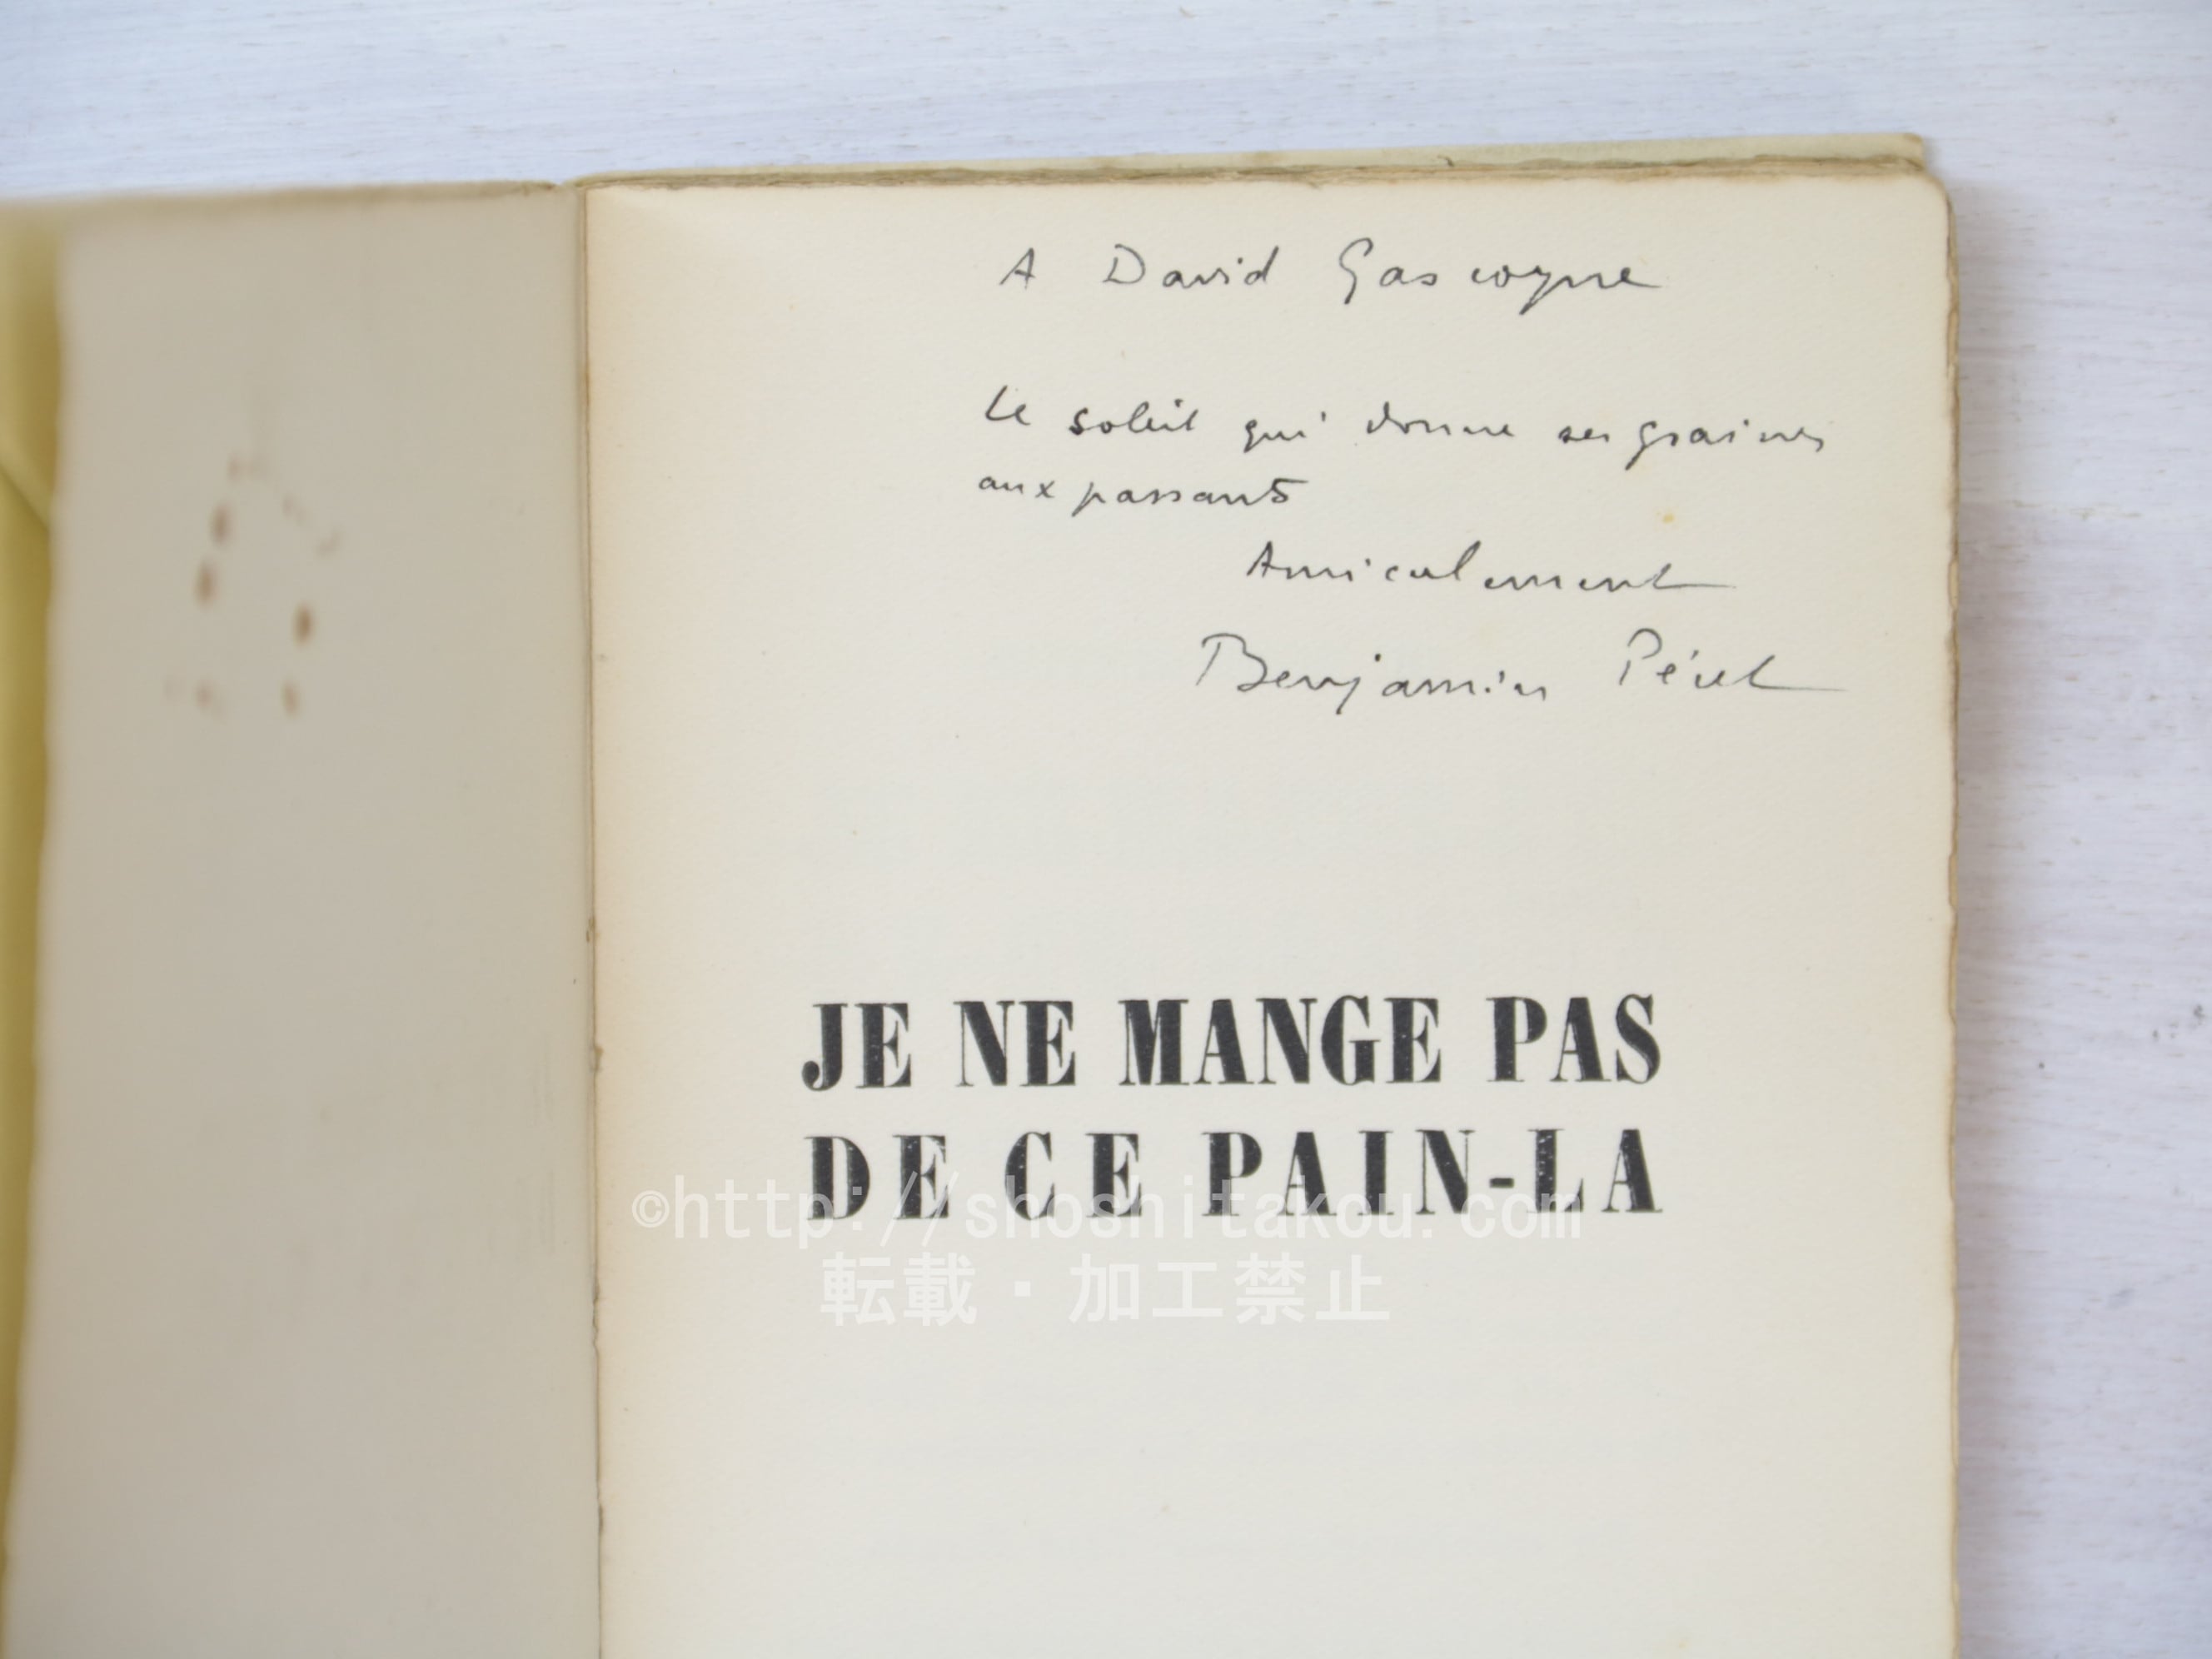 A David Gascoyne
Le soleil qui donne ses graines
aux passants
Amicalement
Benjamin Péret
JE NE MANGE PAS
DE CE PAIN-LA
©http://shoshitakou.com
転載・加工禁止